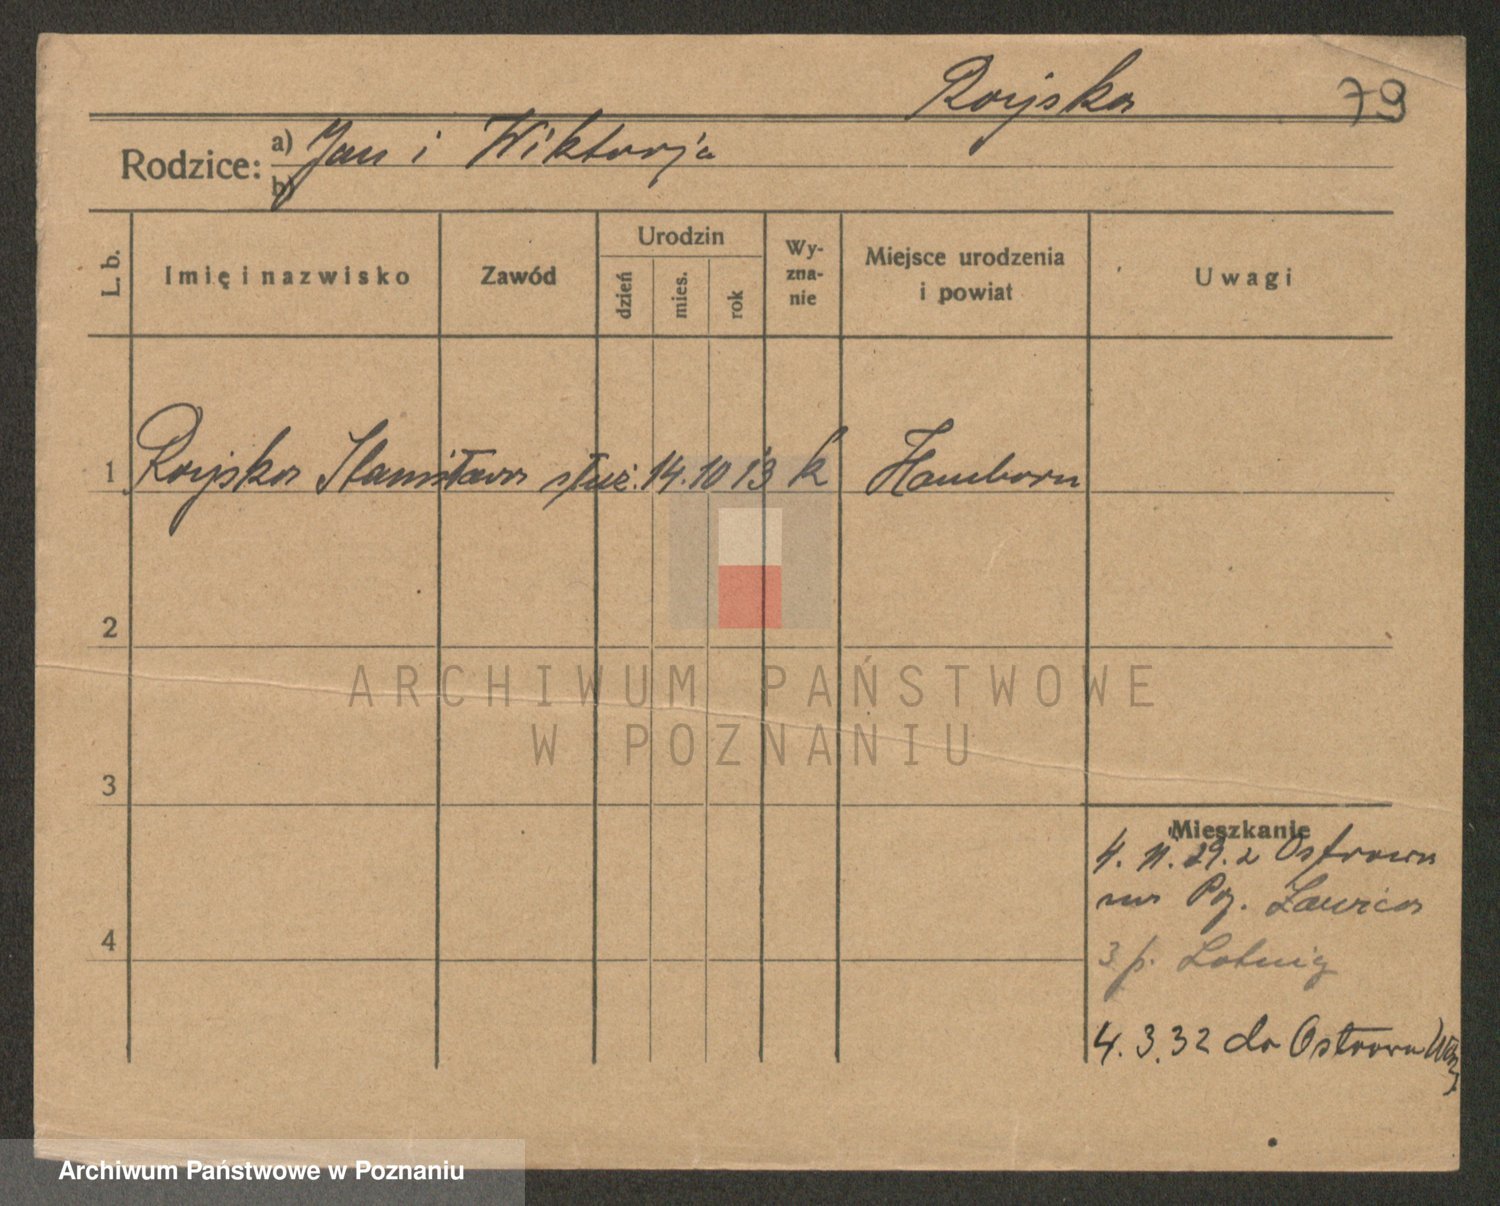 Rojska 79
Rodzice: a) Jan i Wiktorja
b)
L. b. Imię i nazwisko Zawód Urodzin dzień mies. rok Wy-zna-nie Miejsce urodzenia i powiat Uwagi
1 Rojska Stanisława służ. 14. 10 13 k Hamborn
2
ARCHIWUM PAŃSTWOWE
W POZNANIU
3
Mieszkanie
4. 11. 29. z Ostrowa
na Poz. Ławica
4
3 p. Lotnig
4. 3. 32 do Ostrowa
Archiwum Państwowe w Poznaniu